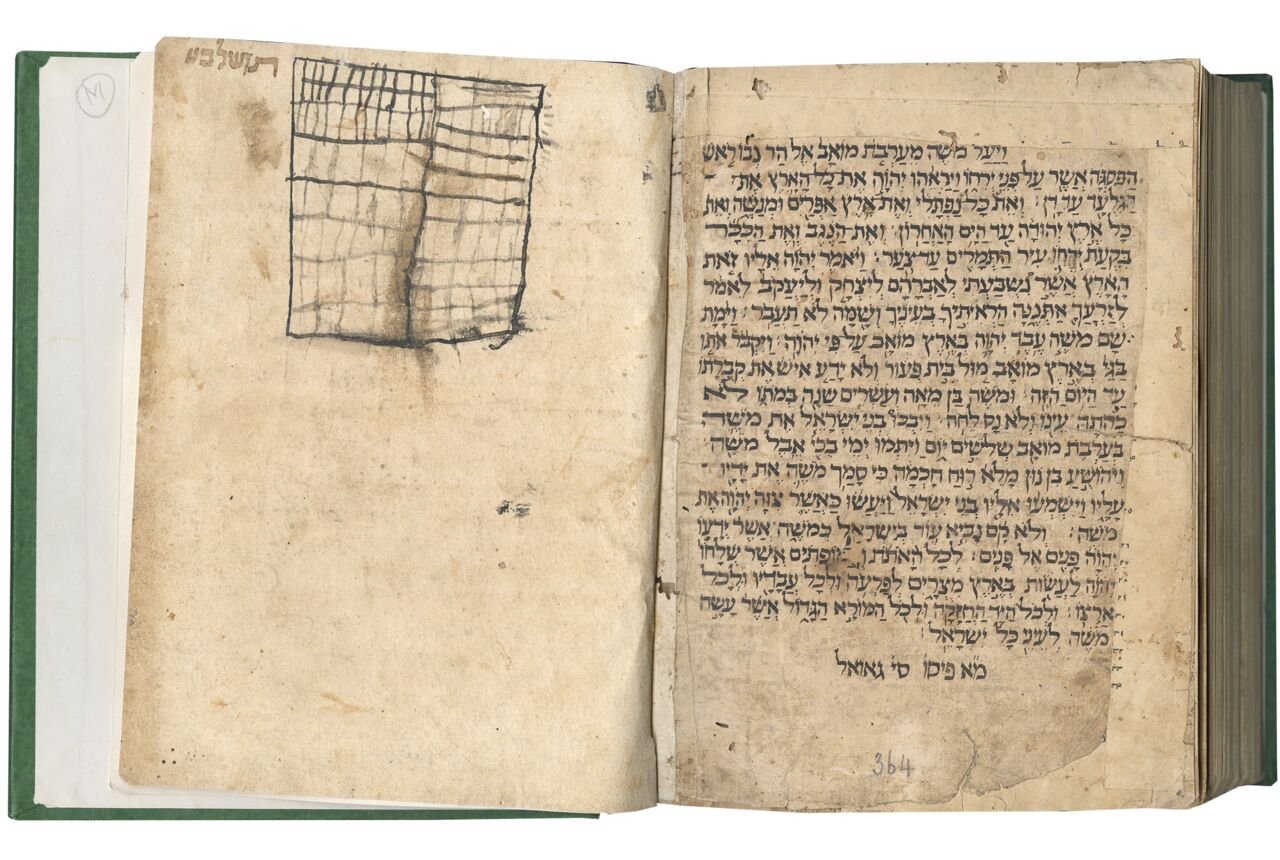 תושלבע
M
ויעל משה מערבת מואב אל הר נבו ראש
הפסגה אשר על פני ירחו ויראהו יהוה את כל הארץ את
הגלעד עד דן: ואת כל נפתלי ואת ארץ אפרים ומנשה ואת
כל ארץ יהודה עד הים האחרון: ואת הנגב ואת הככר
בקעת ירחו עיר התמרים עד צער: ויאמר יהוה אליו זאת
הארץ אשר נשבעתי לאברהם ליצחק וליעקב לאמר
לזרעך אתננה הראיתיך בעיניך ושמה לא תעבר: וימת
שם משה עבד יהוה בארץ מואב על פי יהוה: ויקבר אתו
בגי בארץ מואב מול בית פעור ולא ידע איש את קברתו
עד היום הזה: ומשה בן מאה ועשרים שנה במתו לא
כהתה עינו ולא נס לחה: ויבכו בני ישראל את משה
בערבת מואב שלשים יום ויתמו ימי בכי אבל משה:
ויהושע בן נון מלא רוח חכמה כי סמך משה את ידיו
עליו וישמעו אליו בני ישראל ויעשו כאשר צוה יהוה את
משה: ולא קם נביא עוד בישראל כמשה אשר ידעו
יהוה פנים אל פנים: לכל האתות ו מופתים אשר שלחו
יהוה לעשות בארץ מצרים לפרעה ולכל עבדיו ולכל
ארצו: ולכל היד החזקה ולכל המורא הגדול אשר עשה
משה לעיני כל ישראל:
מא פיסו סי גאואל
364